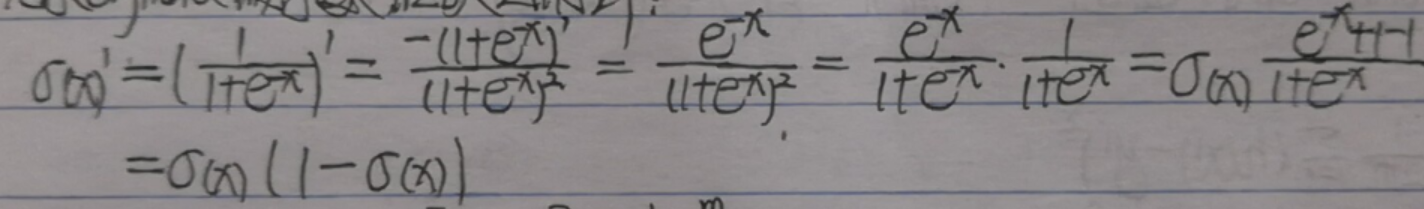 σ(x)' = (1/(1+e^-x))' = -(1+e^-x)'/(1+e^-x)^2 = e^-x/(1+e^-x)^2 = e^-x/(1+e^-x) · 1/(1+e^-x) = σ(x) (e^-x+1-1)/(1+e^-x)
= σ(x) (1-σ(x))